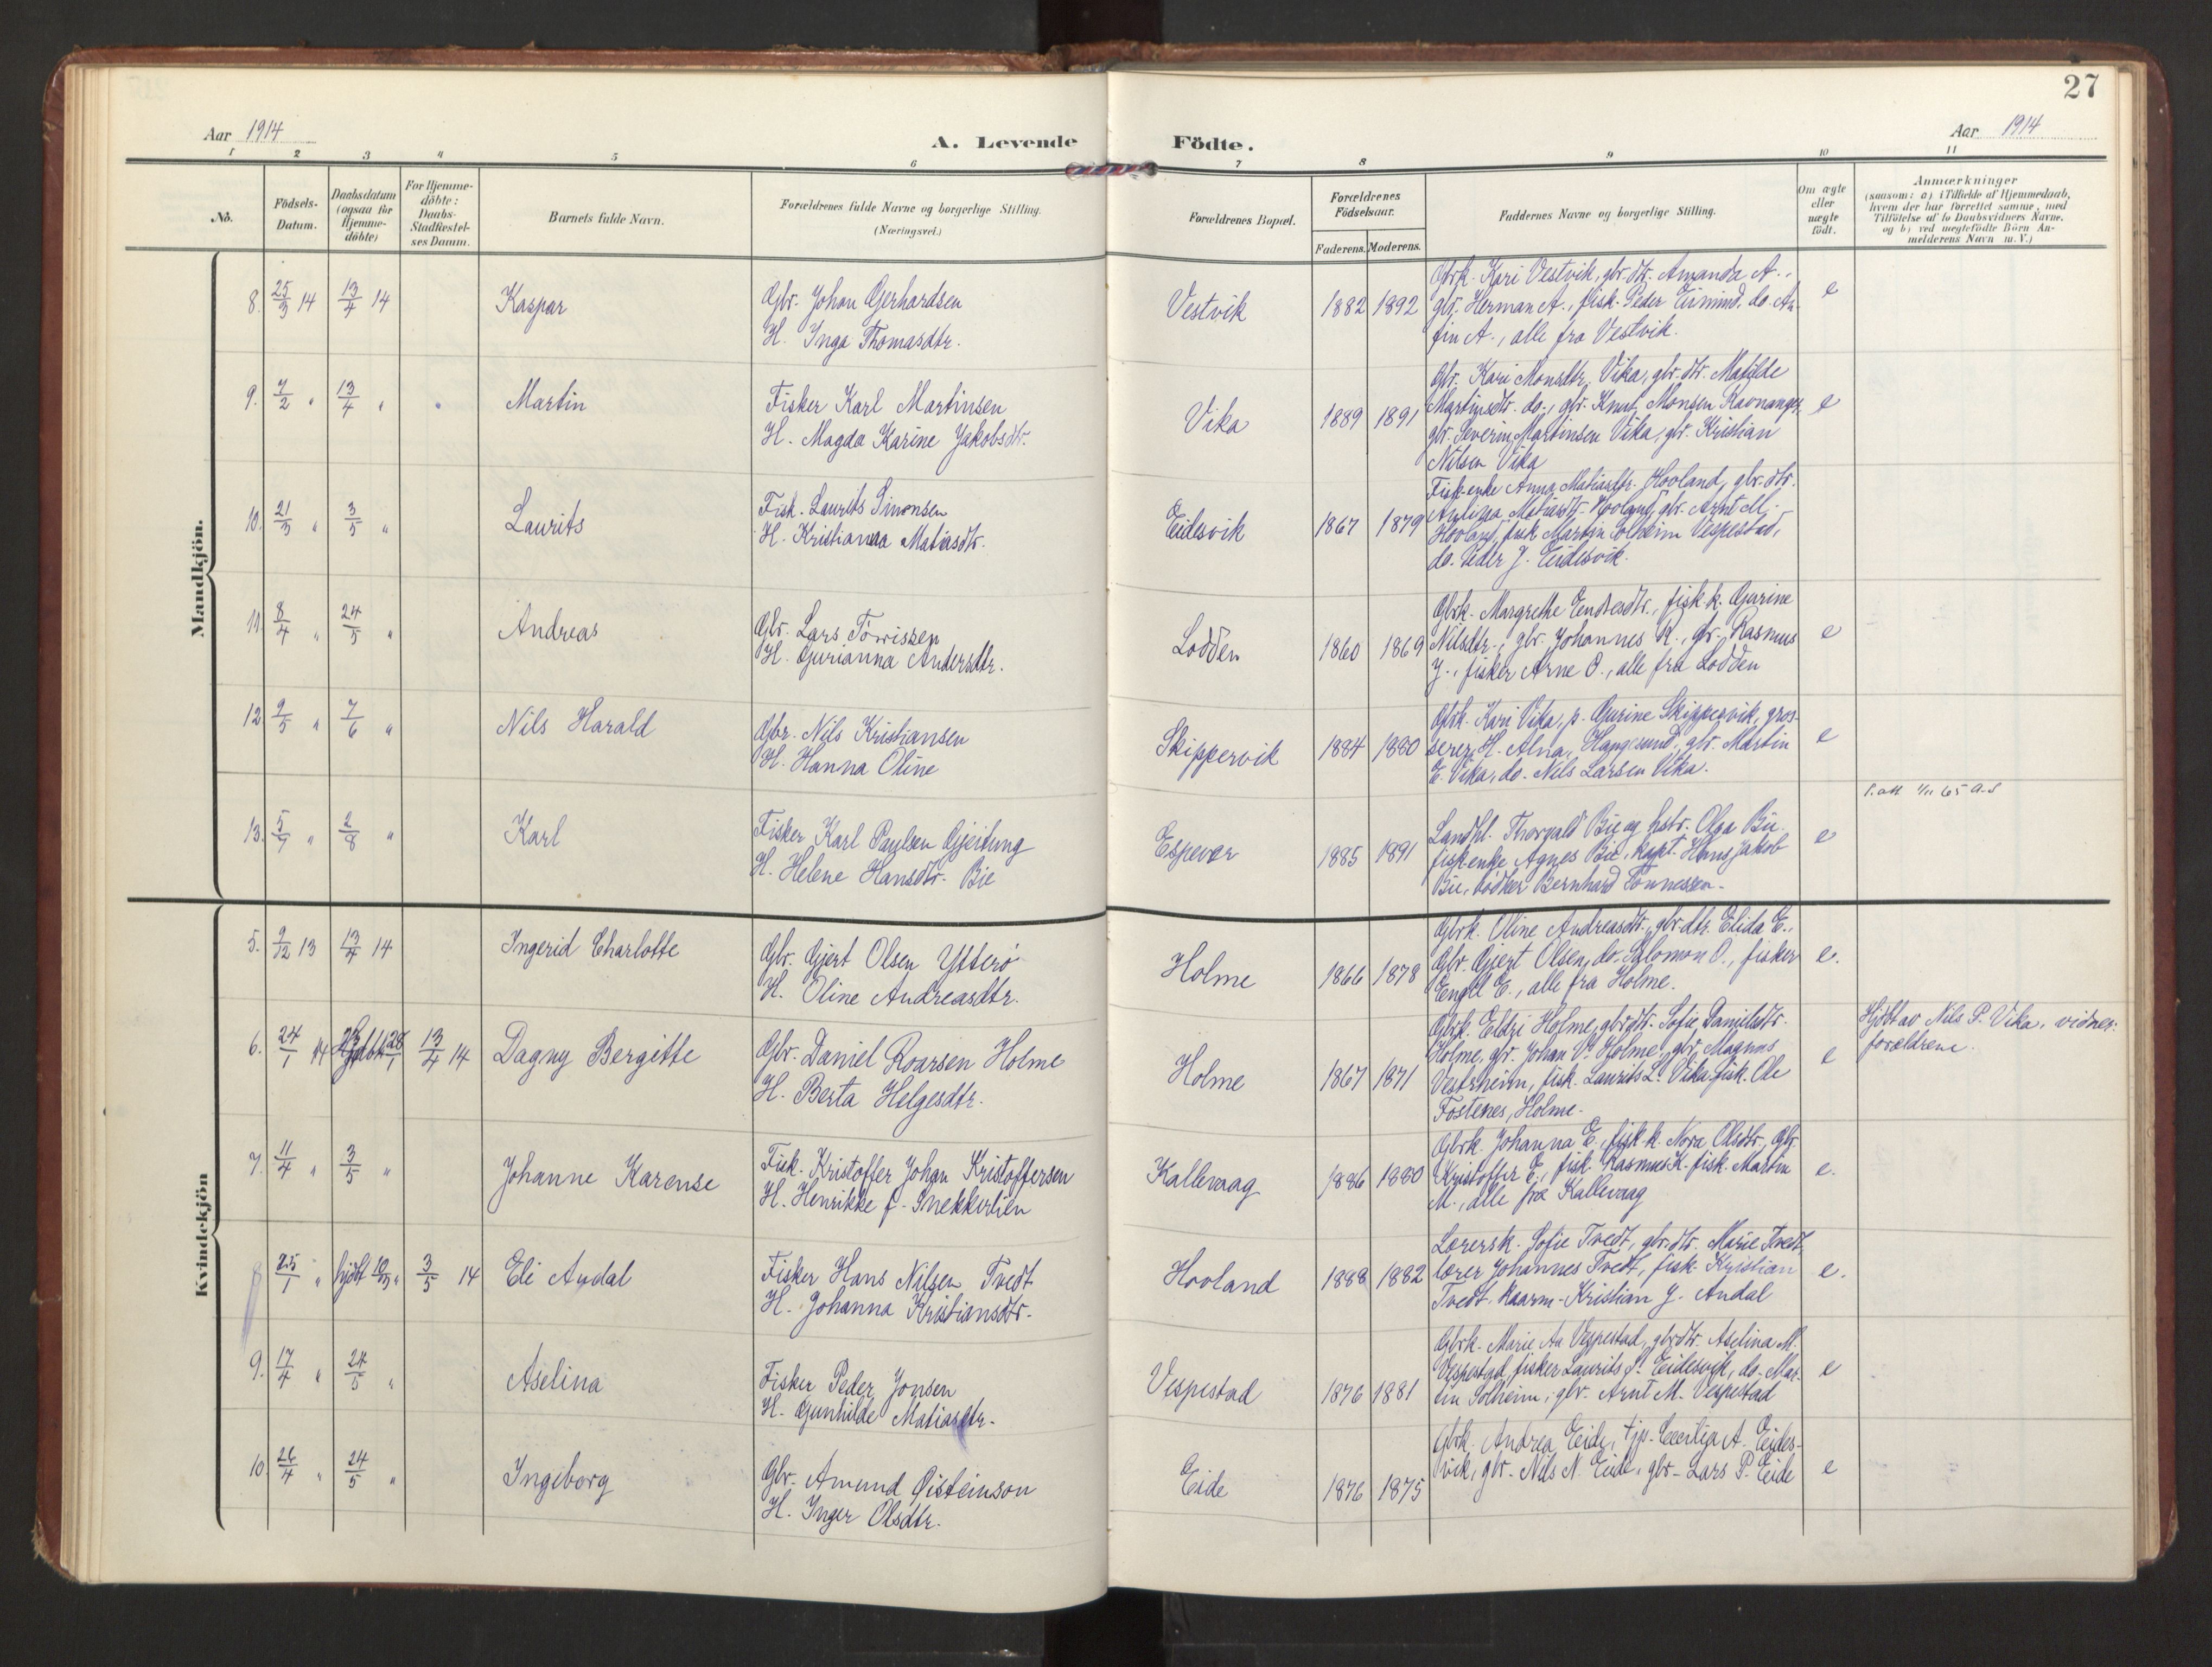 27
Aar 1914
A. Levende
Födte.
Aar 1914
1 2 3 4 5 6 7 8 9 10 11
No.
Födsels-
Datum.
Daabsdatum
(ogsaa for
Hjemme-
döbte)
For Hjemme-
döbte:
Daabs-
Stadfæstel-
ses Datum.
Barnets fulde Navn.
Forældrenes fulde Navne og borgerlige Stilling.
(Næringsvei.)
Forældrenes Bopæl.
Forældrenes
Födselsaar.
Faderens. Moderens.
Faddernes Navne og borgerlige Stilling.
Om ægte
eller
uægte
födt.
Anmærkninger
(saasom: a) i Tilfælde af Hjemmedaab,
hvem der har forrettet samme, med
Tilföielse af to Daabsvidners Navne.
og b) ved uægtefödte Börn An-
melderens Navn m.V.)
Mandkjön.
8. 25/3 14 13/4 14 Kaspar
Gbr. Johan Gerhardsen
H. Inga Thomasdtr.
Vestvik 1882 1892
Gbrk. Kari Vestvik, gbr.dtr. Amanda A.,
gbr. Herman A., fisk. Peder Eimind. do. An-
fin A., alle fra Vestvik.
e
9. 7/2 " 13/4 " Martin
Fisker Karl Martinsen
H. Magda Karine Jakobsdtr.
Vika 1889 1891
Gbr. Kari Monsdtr. Vika, gbr.dtr. Matilde
Martinsdtr. do., gbr. Knut Monsen Ravnanger,
gbr. Severin Martinsen Vika, gbr. Kristian
Nilsen Vika
e
10. 21/3 " 3/5 " Laurits
Fisk. Laurits Simonsen
H. Kristianna Matiasdtr.
Eidesvik 1867 1879
Fiskenke Anna Matiasdtr. Hovland, gbr.dtr.
Matiasdtr. Hovland, gbr. Arnt M.
Hovland, fisk. Martin Solheim Vespestad,
do. Peder J. Eidesvik.
11. 8/4 " 24/5 " Andreas
Gbr. Lars Törrissen
H. Gurianna Andersdtr.
Lodden 1860 1869
Gbrk. Margrethe Endresdtr., fisk.k. Gurine
Nilsdtr., gbr. Johannes R., gbr. Rasmus
J., fisker Arne O., alle fra Lodden
e
12. 9/5 " 7/6 " Nils Harald
Gbr. Nils Kristiansen
H. Hanna Oline
Skippervik 1884 1880
Gbrk. Kari Vika, p. Gurine Skippervik, gros-
serer H. Alna, Haugesund, gbr. Martin
E. Vika, do. Nils Larsen Vika.
e
13. 5/7 " 2/8 " Karl
Fisker Karl Paulsen Gjeitung
H. Helene Hansdtr. Bie
Espevær 1885 1891
Landhl. Thorvald Bie og hstr. Olga Bie,
fiskenke Agnes Bie, kapt. Hans Jakob
Bie, bödker Bernhard Tönnessen.
e
1/11 65
Kvindekjön
5. 9/12 13 13/4 14 Ingerid Charlotte
Gbr. Gjert Olsen Ytterö
H. Oline Andreasdtr.
Holme 1866 1878
Gbrk. Oline Andreasdtr., gbr.dtr. Elida E.,
Gbr. Gjert Olsen, do. Salomon O., fisker
Engel E., alle fra Holme.
e.
6. 24/1 14 Hjdbt 28/1 13/4 14 Dagny Bergitte
Gbr. Daniel Roarsen Holme
H. Berta Helgesdtr.
Holme 1867 1871
Gbrk. Eldri Holme, gbrdtr. Sofie Danielsdtr.
Holme, gbr. Johan V. Holme, gbr. Magnus
Vestrheim, fisk. Laurits L. Vika, fisk. Ole
Fostenes, Holme.
e
Hjdbt av Nils P. Vika, vidner:
forældrene.
7. 11/4 " 3/5 " Johanne Karense
Fisk. Kristoffer Johan Kristoffersen
H. Henrikke f. Snekkerlien
Kallevaag 1886 1880
Gbrk. Johanna E., fisk.k. Nora Olsdtr., Gbr.
Kristoffer E., fisk. Rasmus K. fisk. Martin
M., alle fra Kallevaag
e.
8 25/1 " hjdbt 10/3 " 3/5 14 Eli Aydal
Fisker Hans Nilsen Tvedt
H. Johanna Kristiansdtr.
Hovland 1888 1882
Lærersk. Sofie Tvedt, gbr.dtr. Marie Tvedt,
lærer Johannes Tvedt, fisk. Kristian
Tvedt, Kristian J. Andal
e.
9. 17/4 " 24/5 " Aselina
Fisker Peder Jonsen
H. Gunhilde Matiasdtr.
Vespestad 1876 1881
Gbrk. Marie Aa Vespestad, gbrdtr. Aselina M.
Vespestad, fisker Laurits S. Eidesvik, do. Mar-
tin Solheim, gbr. Arnt M. Vespestad
e
10. 26/4 " 24/5 " Ingeborg
Gbr. Amund Øisteinson
H. Inger Olsdtr.
Eide 1876 1875
Gbrk. Andrea Eide, tjp. Cecilia A. Eides-
vik, gbr. Nils N. Eide, gbr. Lars P. Eide
e